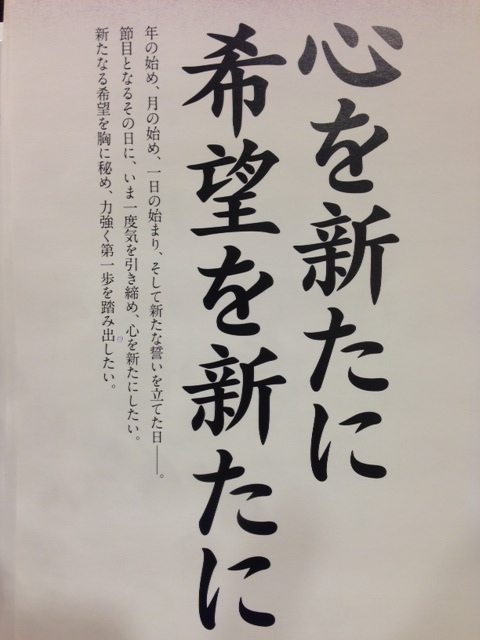 心を新たに
希望を新たに
年の始め、月の始め、一日の始まり、そして新たな誓いを立てた日──。
節目となるその日に、いま一度気を引き締め、心を新たにしたい。
新たなる希望を胸に秘め、力強く第一歩を踏み出したい。